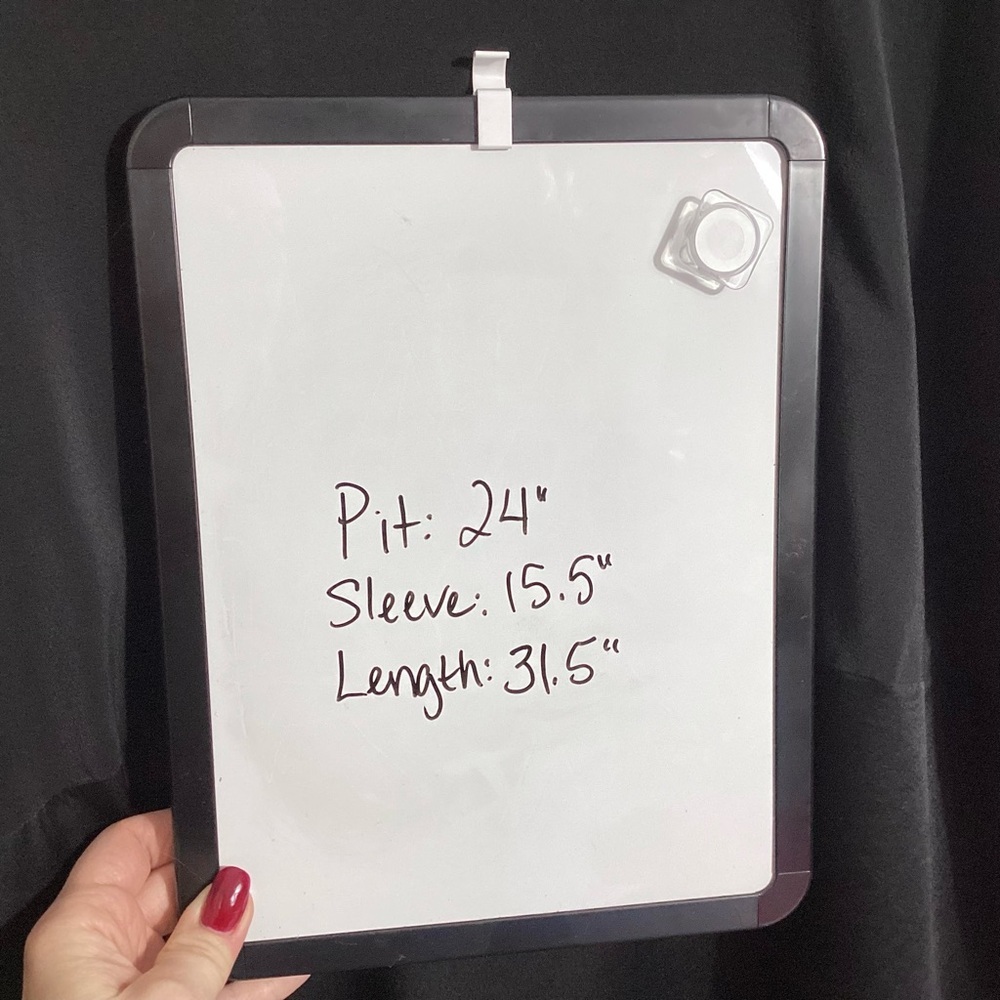 Pit: 24"
Sleeve: 15.5"
Length: 31.5"